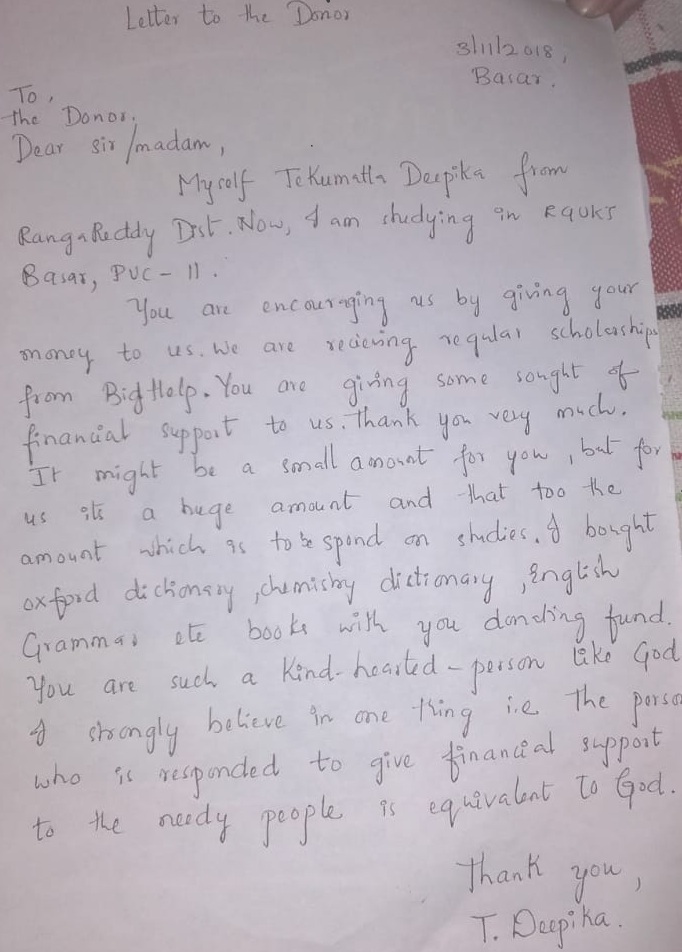 Letter to the Donor
3/11/2018,
Basar.
To,
the Donor.
Dear sir/madam,
Myself Tekumatla Deepika from
RangaReddy Dist. Now, I am studying in RGUKT
Basar, PUC - 11.
You are encouraging us by giving your
money to us. We are recieving regular scholarships
from BigHelp. You are giving some sought of
financial support to us. Thank you very much.
It might be a small amount for you, but for
us its a huge amount and that too the
amount which is to be spend on studies. I bought
oxford dictionary, chemistry dictionary, English
Grammar etc books with you donating fund.
You are such a kind-hearted-person like God
I strongly believe in one thing i.e the perso
who is responded to give financial support
to the needy people is equivalent to God.
Thank you,
T. Deepika.